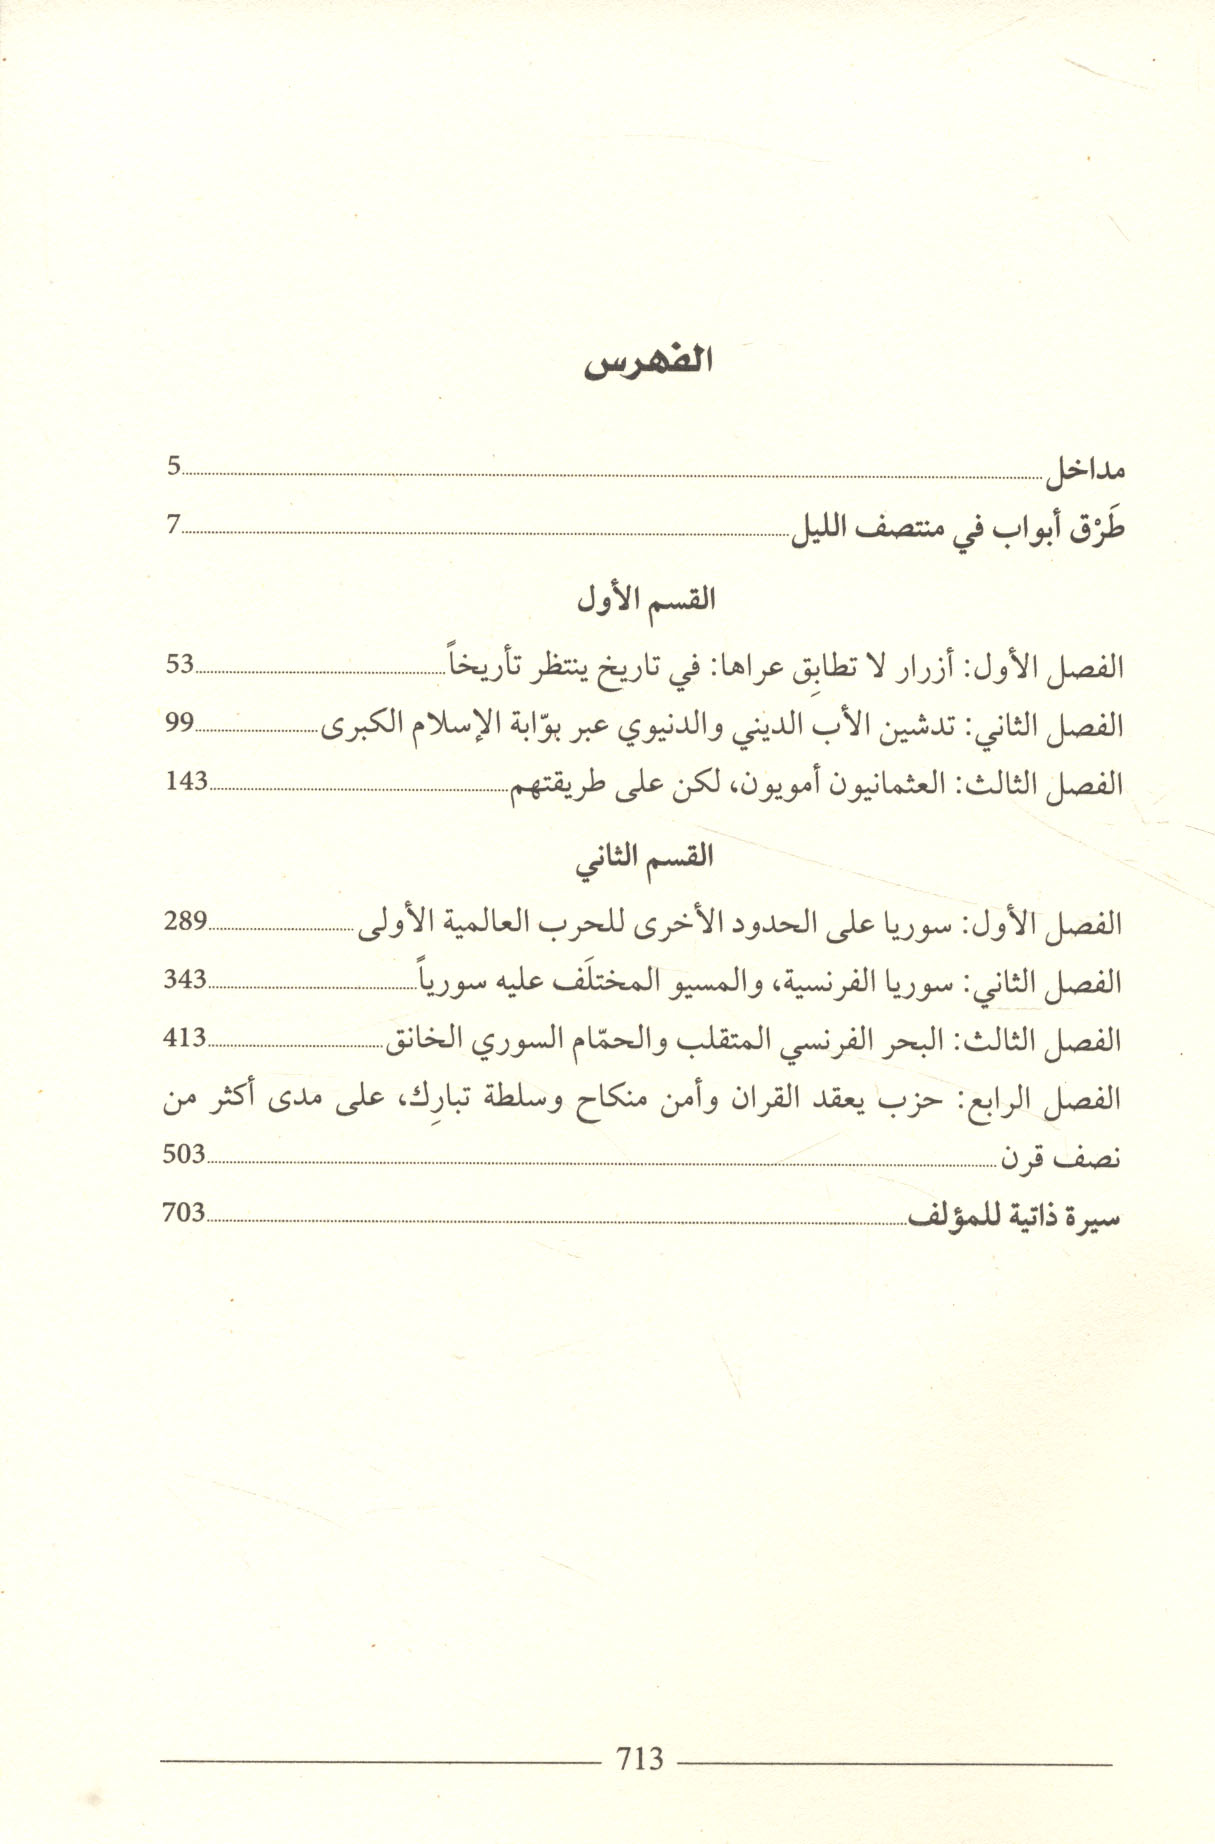 الفهرس
مداخل 5
طَرْق أبواب في منتصف الليل 7
القسم الأول
الفصل الأول: أزرار لا تطابِق عراها: في تاريخ ينتظر تأريخاً 53
الفصل الثاني: تدشين الأب الديني والدنيوي عبر بوّابة الإسلام الكبرى 99
الفصل الثالث: العثمانيون أمويون، لكن على طريقتهم 143
القسم الثاني
الفصل الأول: سوريا على الحدود الأخرى للحرب العالمية الأولى 289
الفصل الثاني: سوريا الفرنسية، والمسيو المختلَف عليه سورياً 343
الفصل الثالث: البحر الفرنسي المتقلب والحمّام السوري الخانق 413
الفصل الرابع: حزب يعقد القران وأمن منكاح وسلطة تبارِك، على مدى أكثر من
نصف قرن 503
سيرة ذاتية للمؤلف 703
713